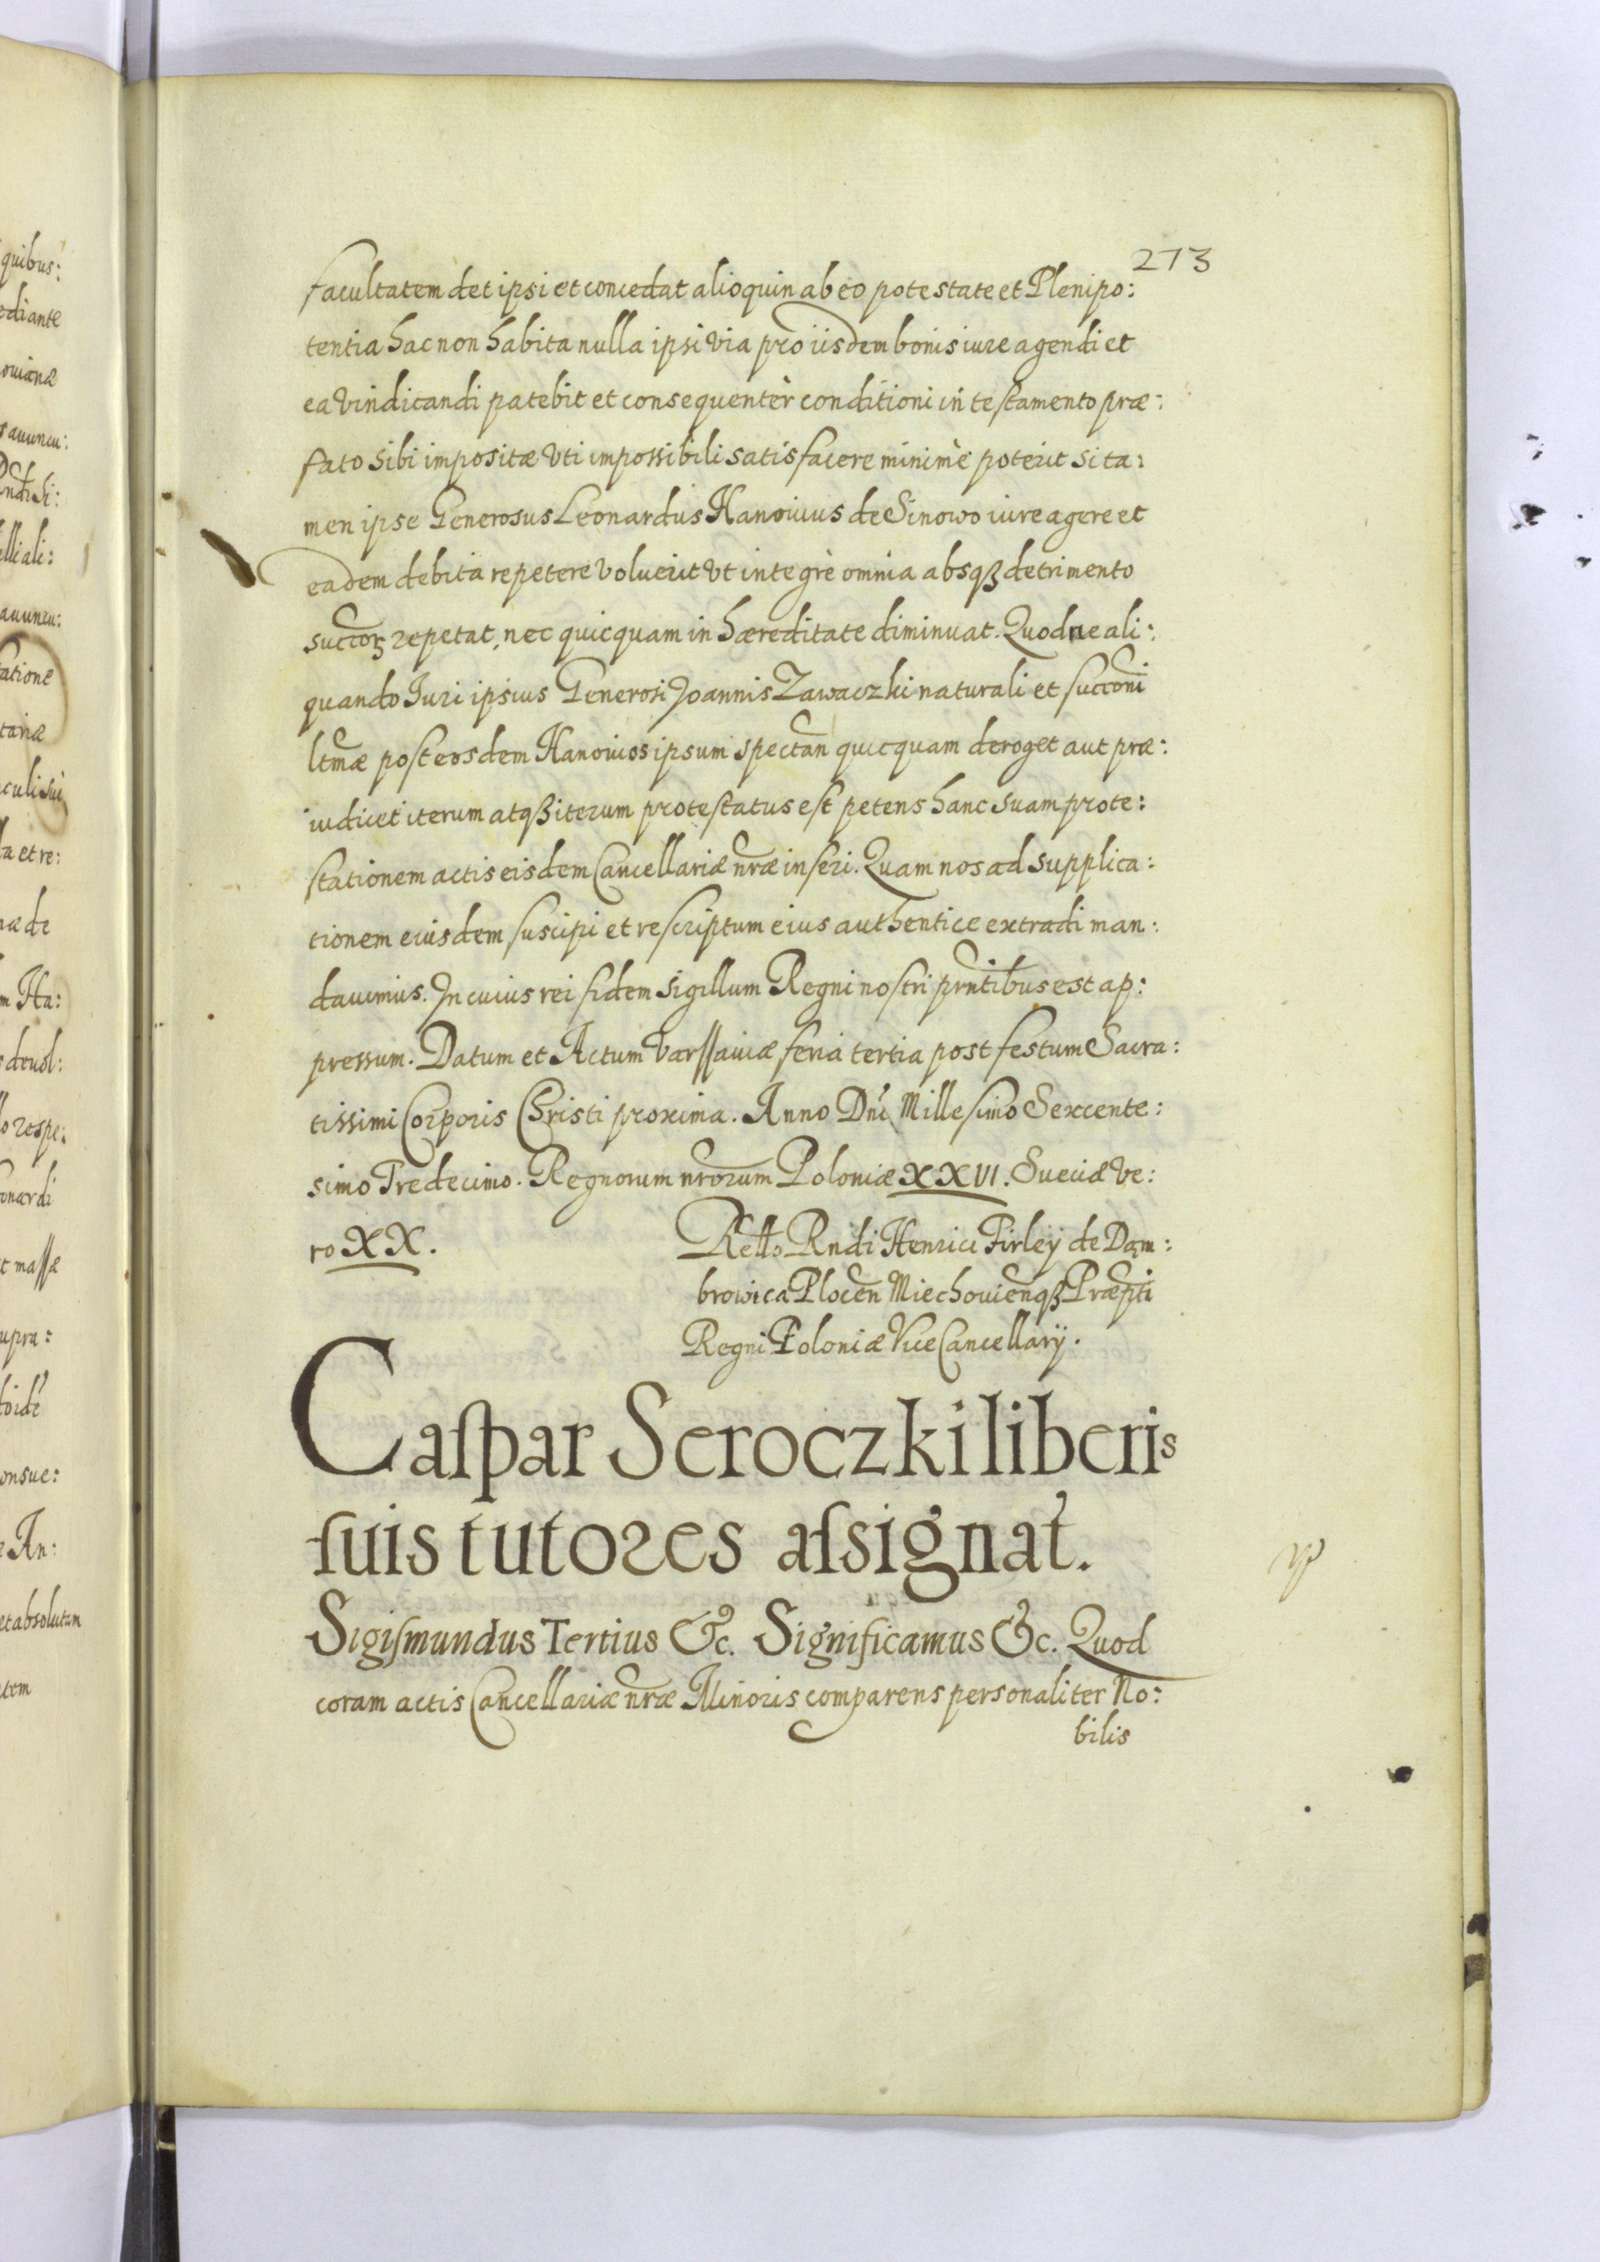 273
facultatem det ipsi et concedat alioquin ab eo potestate et Plenipo:
tentia hac non habita nulla ipsi via pro iisdem bonis iure agendi et
ea vindicandi patebit et consequentèr conditioni in testamento præ:
fato sibi impositæ vti impossibili satisfacere minimè poterit si ta:
men ipse Generosus Leonardus Hanouius de Sinowo iure agere et
eadem debita repetere voluerit vt integrè omnia absqꝫ detrimento
succorꝫ repetat, nec quicquam in hæreditate diminuat. Quod ne ali:
quando Iuri ipsius Generosi Joannis Zawaczki naturali et succoni
ltmæ post eosdem Hanouios ipsum spectan quicquam deroget aut præ:
iudicet iterum atqꝫ iterum protestatus est petens hanc suam prote:
stationem actis eisdem Cancellariæ nræ inseri. Quam nos ad supplica:
tionem eiusdem suscipi et rescriptum eius authentice extradi man:
dauimus. In cuius rei fidem sigillum Regni nostri prntibus est ap:
pressum. Datum et Actum Varssauiæ feria tertia post festum Sacra:
tissimi Corporis Christi proxima. Anno Dni Millesimo Sexcente:
simo Tredecimo. Regnorum nrorum Poloniæ XXVI. Sueciæ ve:
ro XX.
Rello Rndi Henrici Firleÿ de Dam:
browica Plocen Miechouienqꝫ Præpti
Regni Poloniæ ViceCancellarÿ.
Caſpar Seroczki liberis
ſuis tutores aſsignat.
Sigiſmundus Tertius &c. Significamus &c. Quod
coram actis Cancellariæ nræ Minoris comparens personaliter No:
bilis